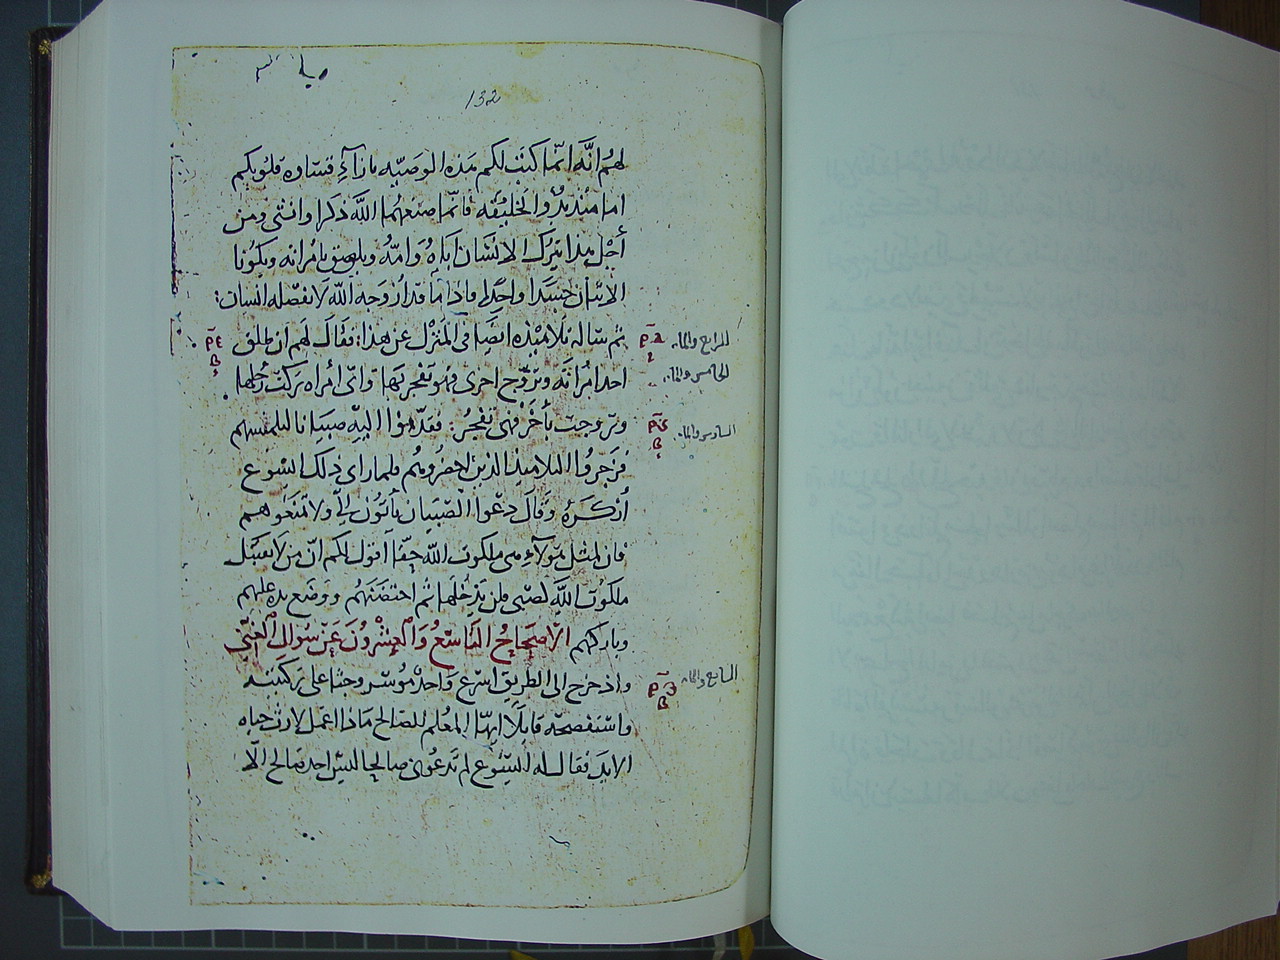 132
لهم انّه انّما كتب لكم هذه الوصيّه بازآءِ قساوة قلوبكم
اما منذ بدُو الخليقه فانّما صنعهُما اللّه ذكرا وانثى ومن
أجل هذا يترك الانسَان اَباهُ وَامّهُ ويلصق بامْراته ويكونا
الاثنان جسَدًا واحدًا فاذًا ما قد ازوجه اللّه لا يفصّله انسان:
ثم سَاله تلاميْذه ايضًا فى المَنْزل عن هذا: فقال لهم ان طلق
احد امْراتَه وتزوّج اخرى فهو تفجر بهَا وانّ امراه تركت رجُلها
وتزوجت بأخَر فهى تفجُر: فقدّموْا اليْه صبيانا ليلمسهم
فزجروا التلاميذ الذين احضروهُم فلما راى ذلك ايسُوع
اَنْكَرَهُ وَقال دعُوا الصّبيَان يأتُون الىَّ ولا تمنعَوهم
فان لمثل هَولآءِ هى ملكوت اللّه حقًا اقول لكم انّ من لا يقبَل
ملكُوت اللّه لصَبى فلن يَدْخُلَهَا ثم احتضَنَهُم ووضع يده عليهم
وباركهم الاصحَاحُ التاسْعُ وَالعِشْرُونَ عَنْ سُوال الغنِّى
واذ خرج الى الطريق اسرع وَاحد مُوسر وحثا على ركبتيْه
واسْتفصحه قايلًا ايهّا المعُلم الصّالح مَاذا اعمل لارث حياه
الابد فقال له ايسُّوع لم تدعُونى صَالحا ليْس احد صَالح الاّ
الرابع والمايه
الخامس والمايه
السادس والمايه
السابع والمايه